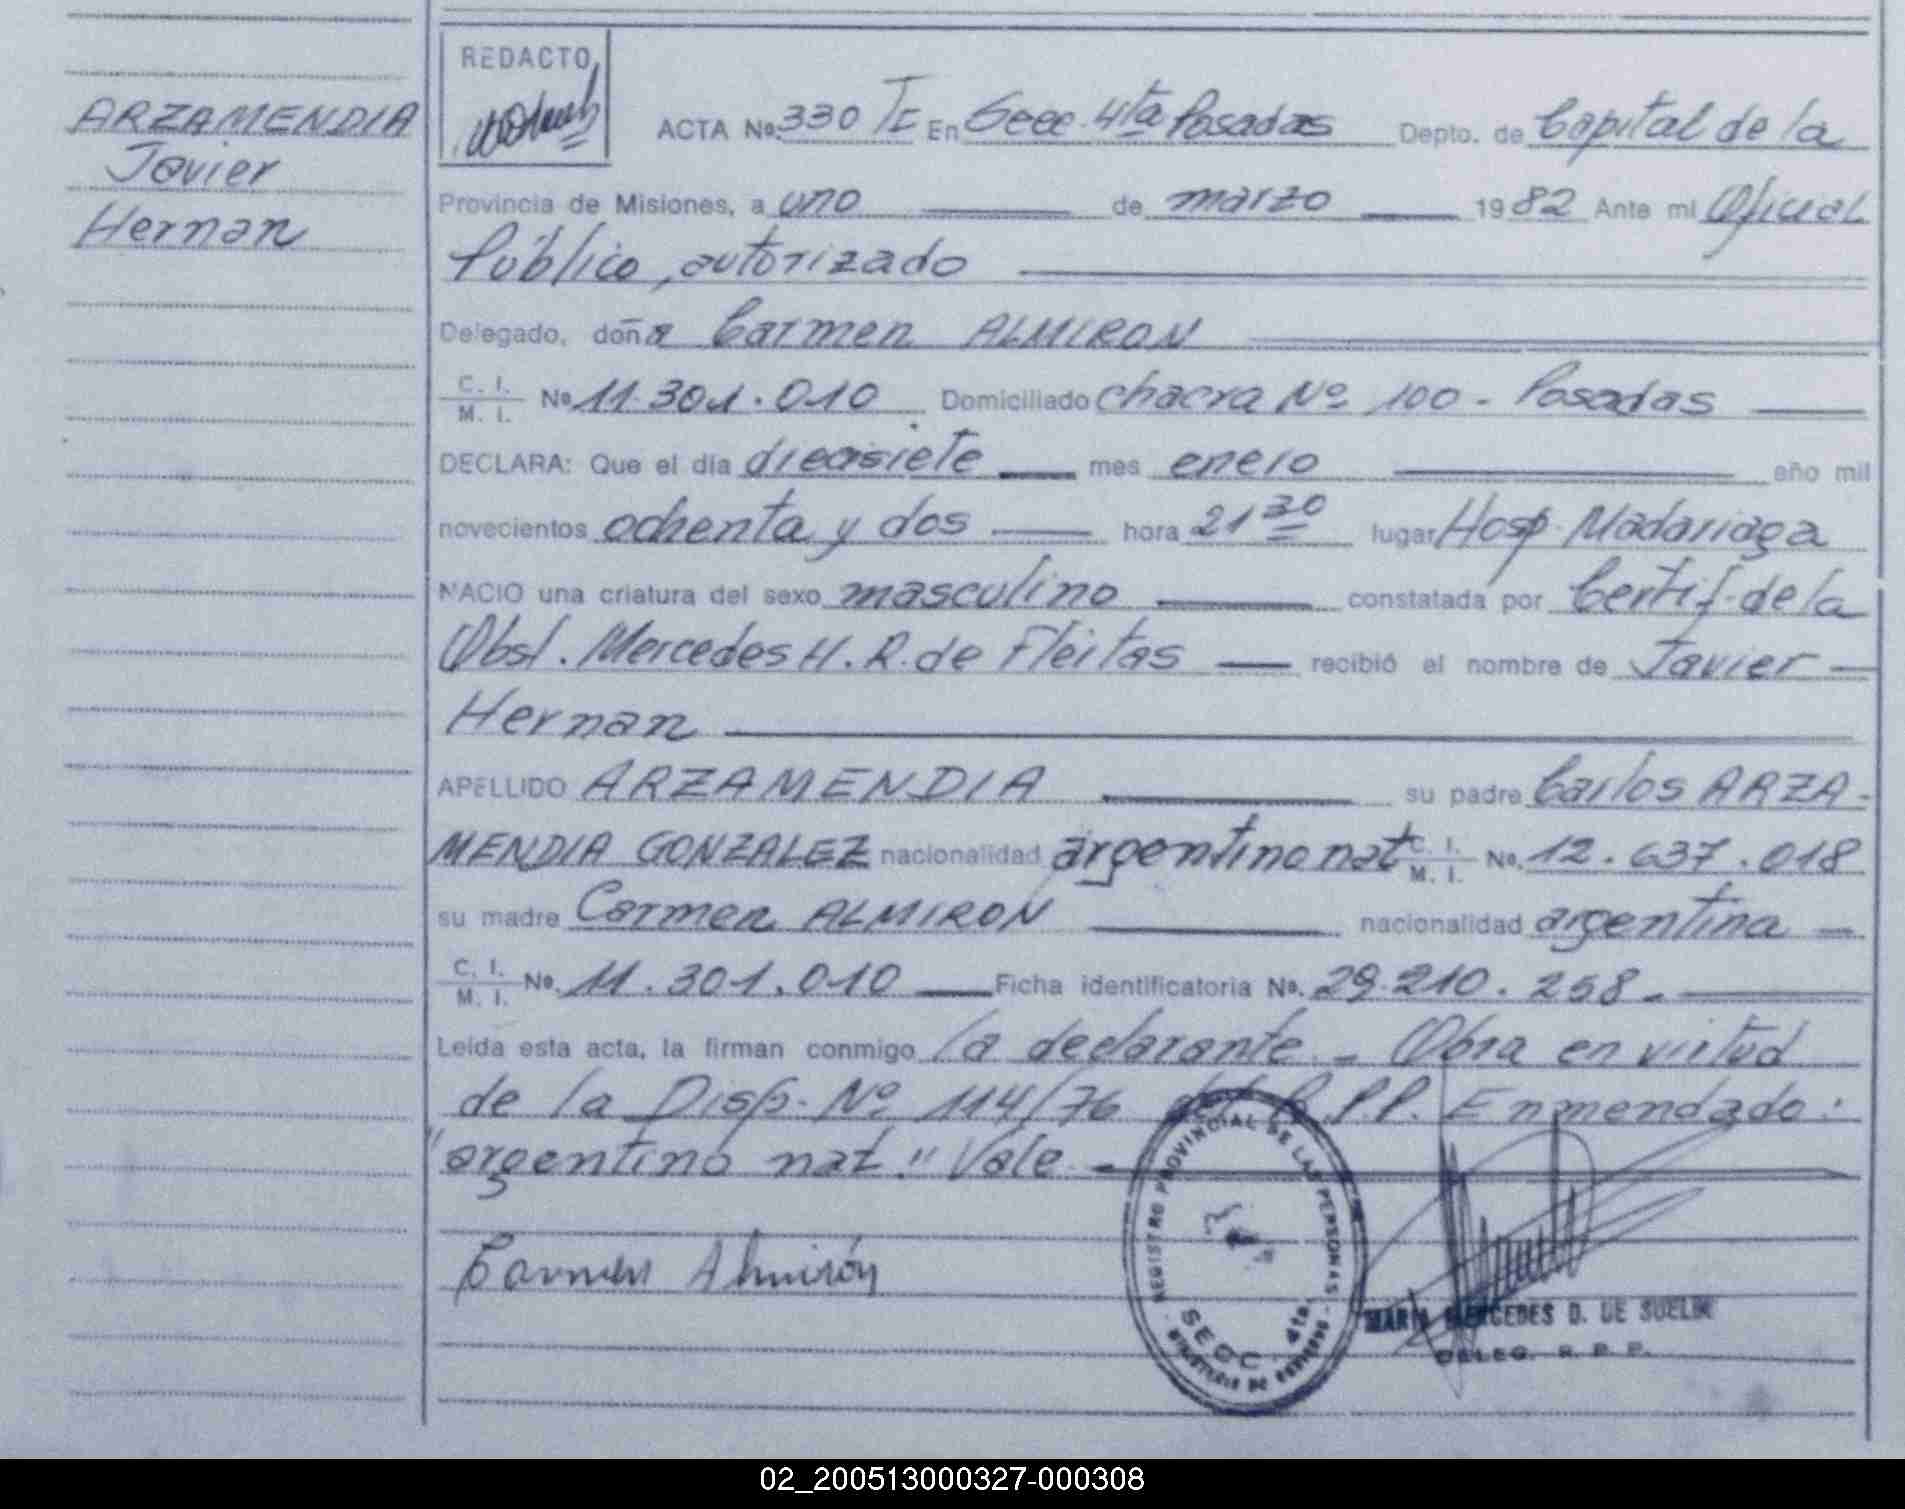 ARZAMENDIA
Javier
Hernan
REDACTO
ACTA Nº 330 TI En Secc. 4ta Posadas Depto. de Capital de la
Provincia de Misiones, a uno de marzo 1982 Ante mi Oficial
Público, autorizado
Delegado, doña Carmen ALMIRON
C. I.
M. I. Nº 11.301.010 Domiciliado chacra Nº 100 - Posadas
DECLARA: Que el día diecisiete mes enero año mil
novecientos ochenta y dos hora 21 30 lugar Hosp. Madariaga
NACIO una criatura del sexo masculino constatada por Certif. de la
Obst. Mercedes H. R. de Fleitas recibió el nombre de Javier
Hernan
APELLIDO ARZAMENDIA su padre Carlos ARZA-
MENDIA GONZALEZ nacionalidad argentino nat C. I. M. I. Nº. 12.637.018
su madre Carmen ALMIRON nacionalidad argentina
C. I.
M. I. Nº. 11.301.010 Ficha identificatoria Nº. 29.210.258.-
Leída esta acta, la firman conmigo la declarante - Obra en virtud
de la Disp. Nº 114/76 del R.P.P. Enmendado:
"argentino nat." Vale
Carmen Almirón
REGISTRO PROVINCIAL DE LAS PERSONAS
SECC. 4ta.
MINISTERIO DE GOBIERNO
MARIA MERCEDES D. DE
DELEG. R. P. P.
02_200513000327-000308